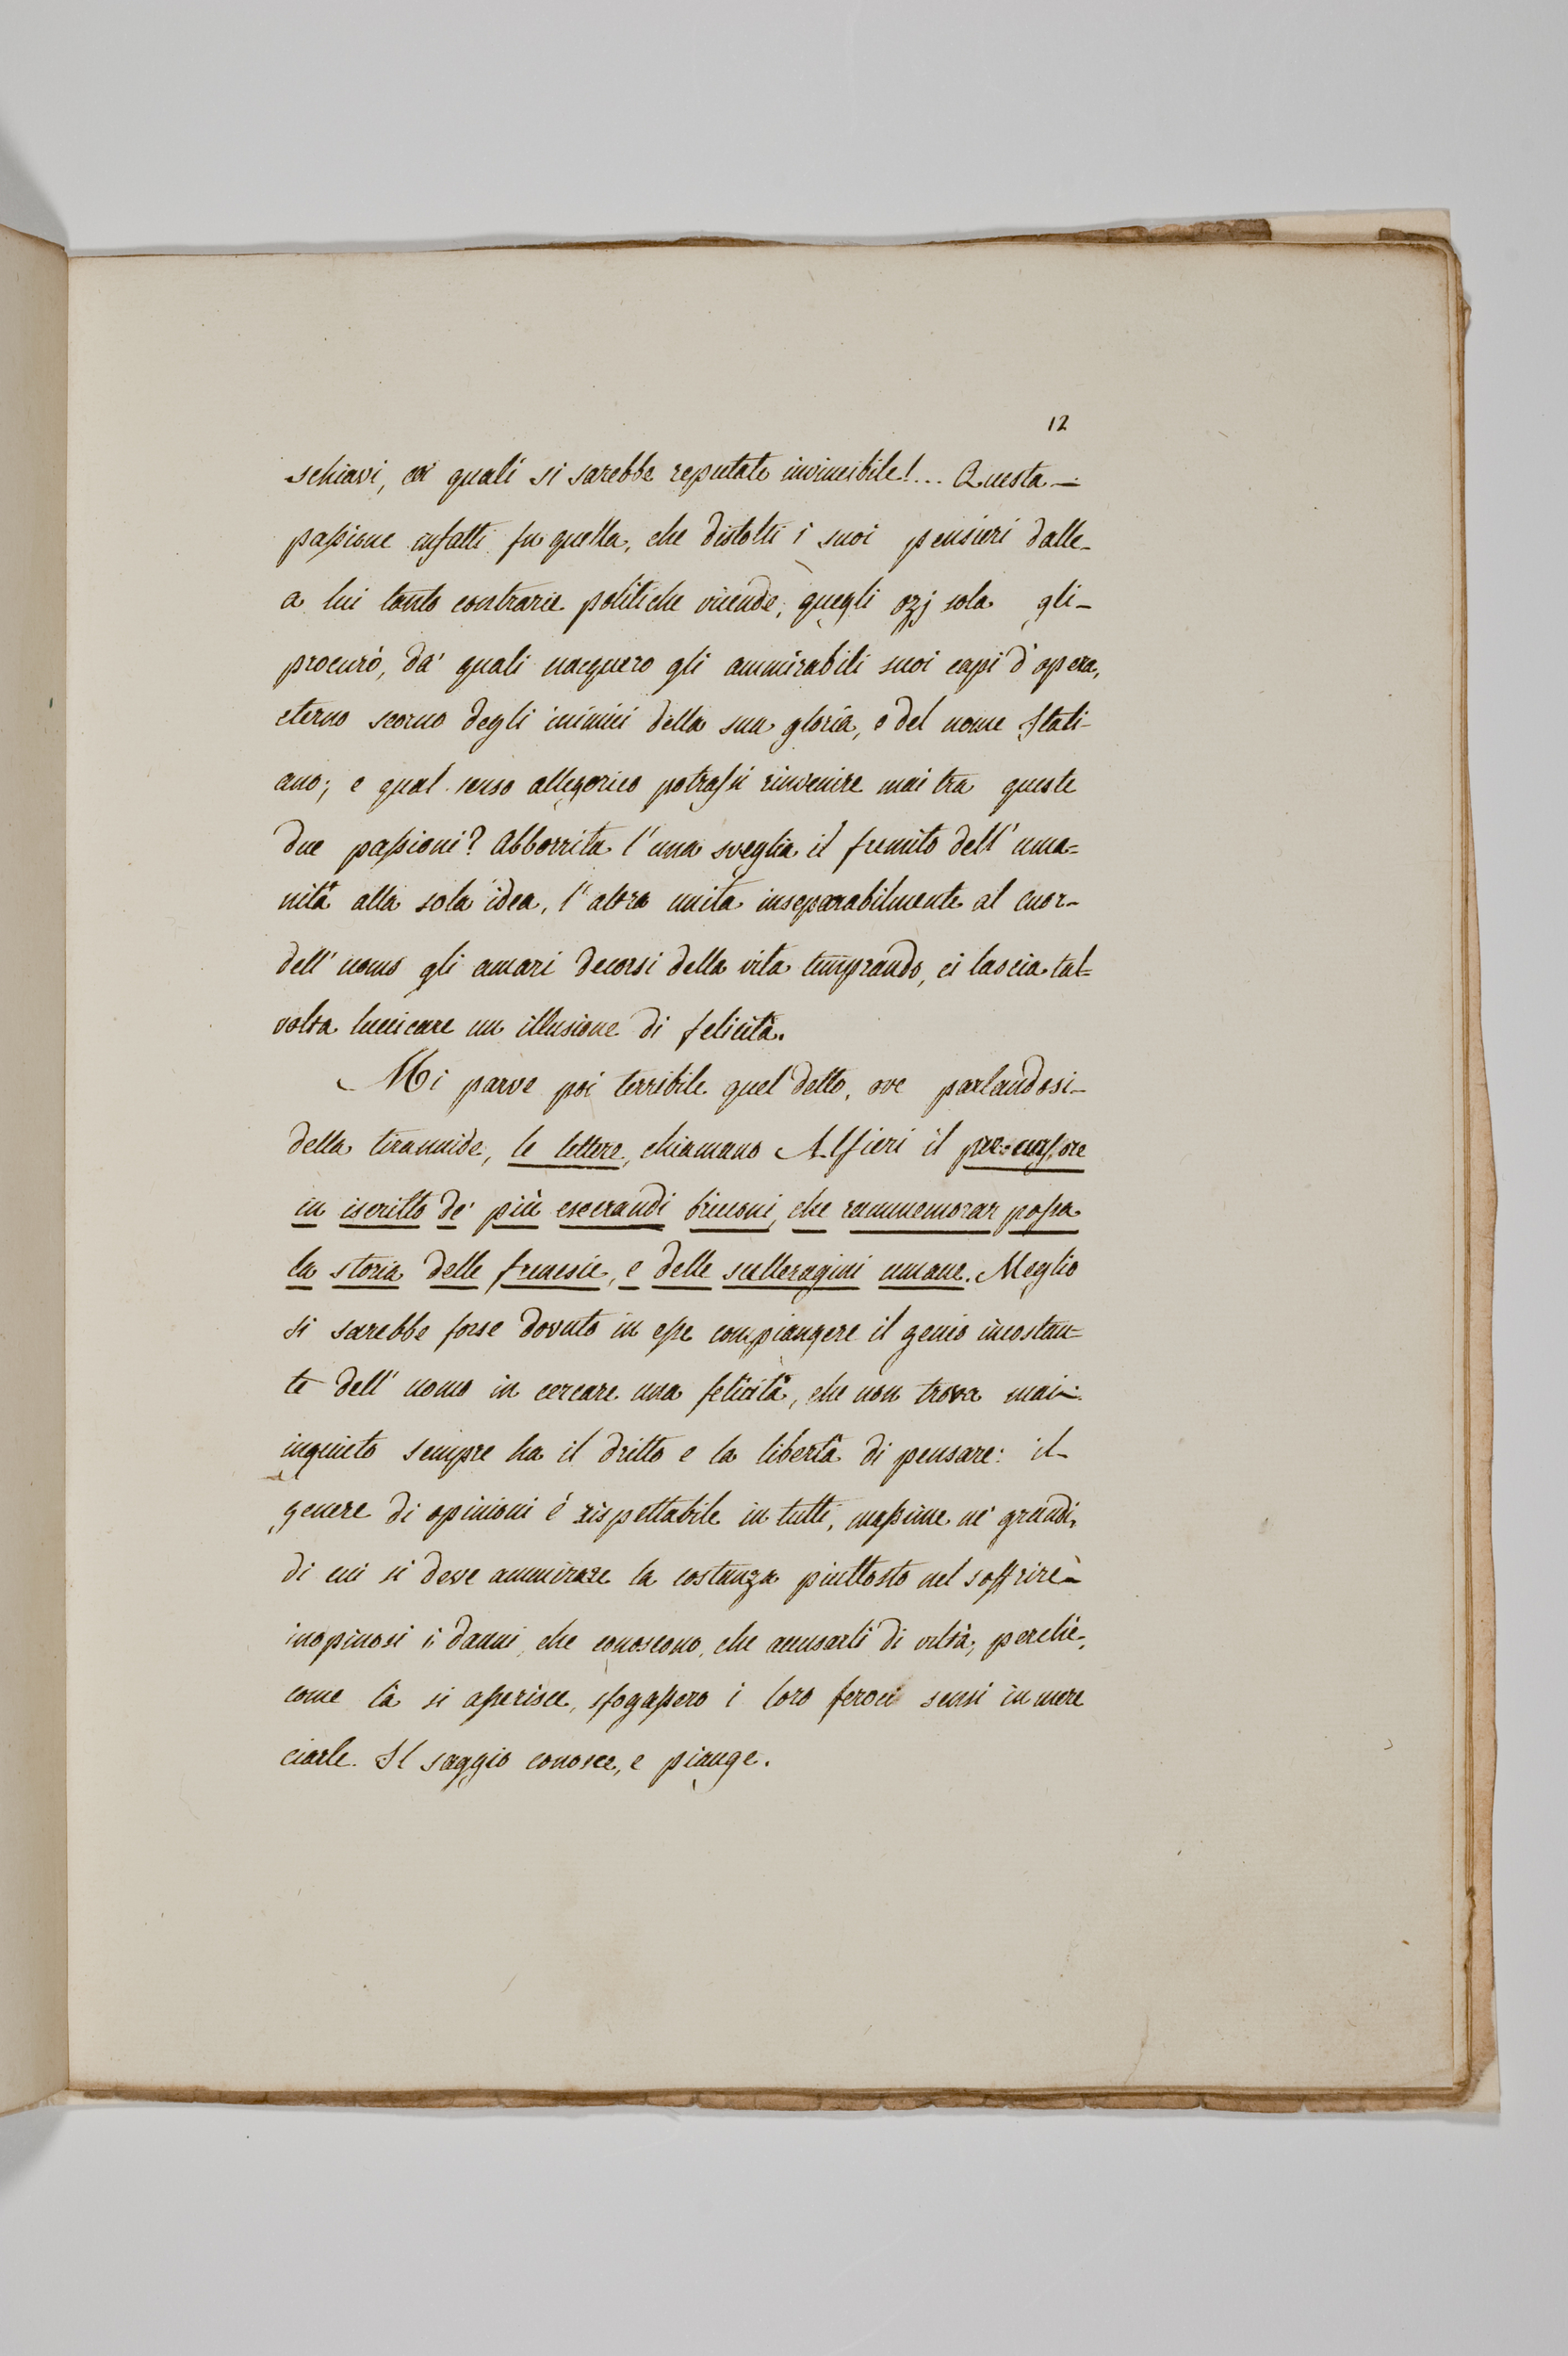 12
schiavi, coi quali si sarebbe reputato invincibile!... Questa —
passione infatti fu quella, che distolti i suoi pensieri dalle-
a lui tanto contrarie politiche vicende, quegli ozj sola gli-
procurò, da' quali nacquero gli ammirabili suoi capi d'opera,
eterno scorno degli inimici della sua gloria, e del nome Itali-
ano; e qual senso allegorico potrassi rinvenire mai tra queste
due passioni? Abborrita l'una sveglia il fremito dell'uma=
nità alla sola idea, l'altra unita inseparabilmente al cuor-
dell'uomo gli amari decorsi della vita temprando, ci lascia tal=
volta luccicare un illusione di felicità.
Mi parve poi terribile quel detto, ove parlandosi-
della tirannide, le lettere, chiamano Alfieri il precursore
in iscritto de' più esecrandi bricconi, che rammemorar possa
la storia delle frenesie, e delle scelleragini umane. Meglio
si sarebbe forse dovuto in esse compiangere il genio incostan=
te dell'uomo in cercare una felicità, che non trova mai-
inquieto sempre ha il dritto e la libertà di pensare: il-
genere di opinioni é rispettabile in tutti, massime ne' grandi,
di cui si deve ammirare la costanza piuttosto nel soffrire-
inopinosi i danni, che conoscono, che accusarli di viltà, perchè,
come là si asserisce, sfogassero i loro feroci sensi in mere
ciarle. Il saggio conosce, e piange.